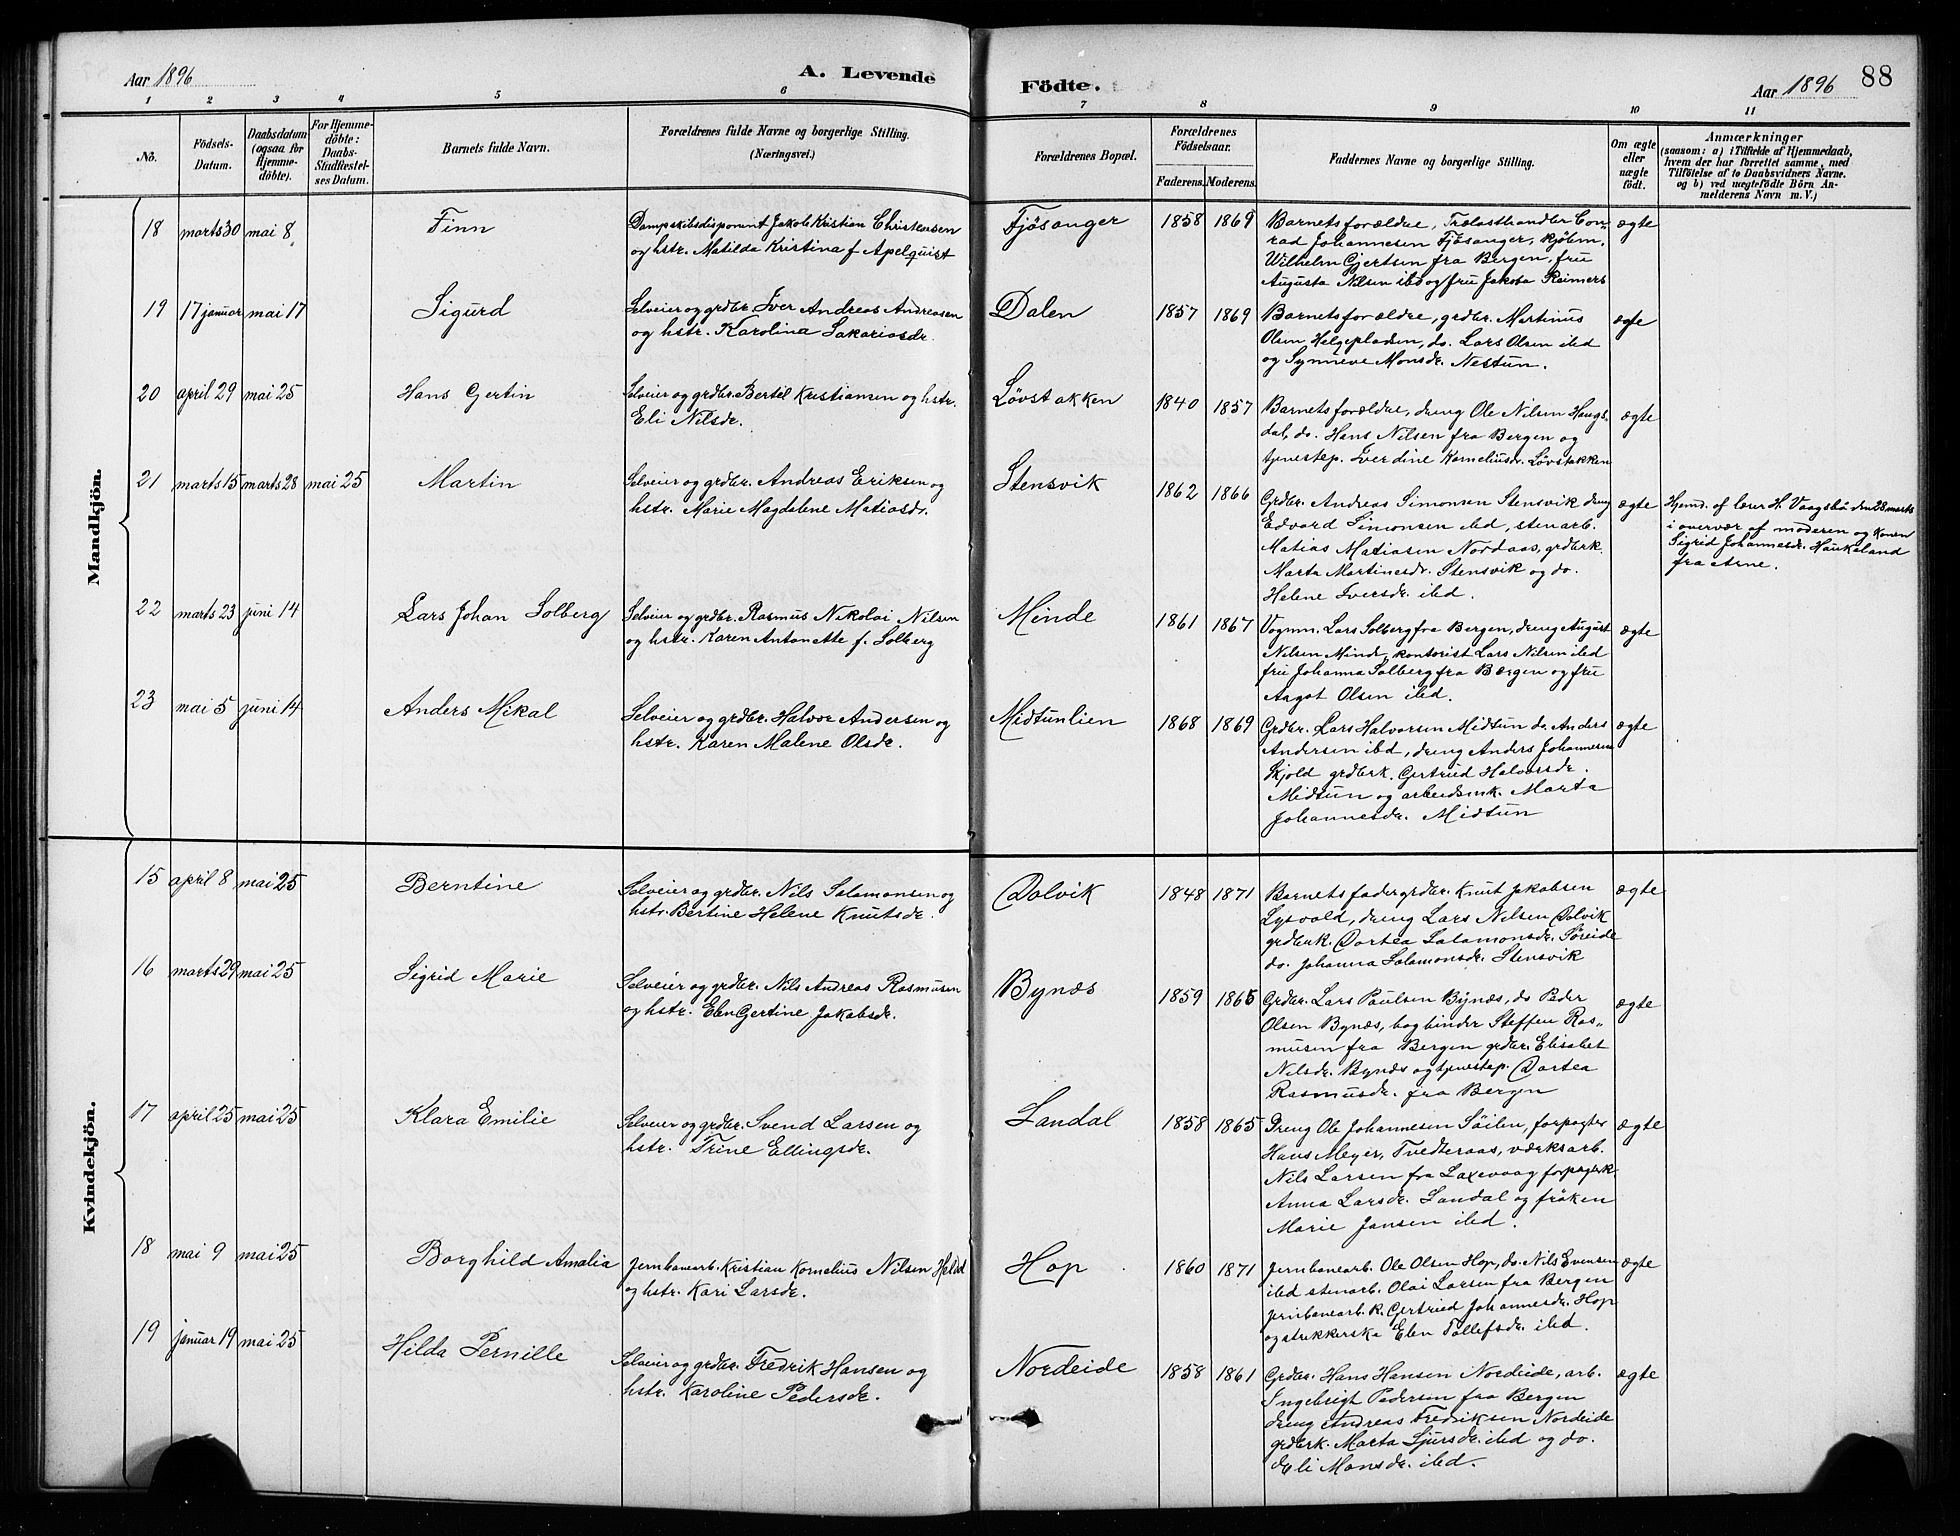 Aar 1896
A. Levende
Födte.
Aar 1896
88
1 2 3 4 5 6 7 8 9 10 11
No.
Födsels-
Datum.
Daabsdatum
(ogsaa for
Hjemme-
döbte).
For Hjemme-
döbte:
Daabs-
Stadfæstel-
ses Datum.
Barnets fulde Navn.
Forældrenes fulde Navne og borgerlige Stilling.
(Næringsvei.)
Forældrenes Bopæl.
Forældrenes
Födselsaar.
Faderens.
Moderens.
Faddernes Navne og borgerlige Stilling.
Om ægte
eller
uægte
födt.
Anmærkninger
(saasom: a) i Tilfælde af Hjemmedaab,
hvem der har forrettet samme, med
Tilföielse af to Daabsvidners Navne.
og b) ved uægtefödte Börn An-
melderens Navn m.V.)
Mandkjön.
18 marts 30 mai 8 Finn
Dampskibsdisponent Jakob Kristian Christensen
og hstr. Matilda Kristina f. Apelquist
Fjösanger 1858 1869
Barnets forældre, Trælasthandler Con-
rad Johannesen Fjösanger, kjöbm.
Wilhelm Gjertsen fra Bergen, fru
Augusta Nilsen ibd og fru Jakoba Reimers
ægte
19 17 januar mai 17 Sigurd
Selveier og grdbr. Iver Andreas Andreasen
og hstr. Karolina Sakariasdr.
Dalen 1857 1869
Barnets forældre, grdbr. Martinus
Olsen Helgepladen, do. Lars Olsen ibd
og Synneve Monsdr. Nestun.
ægte
20 april 29 mai 25 Hans Gertin
Selveier og grdbr. Bertel Kristiansen og hstr.
Eli Nilsdr.
Løvstakken 1840 1857
Barnets forældre, dreng Ole Nilsen Haugs-
dal, do. Hans Nilsen fra Bergen og
tjenestep. Iverdine Korneliusdr. Løvstakken
ægte
21 marts 15 marts 28 mai 25 Martin
Selveier og grdbr. Andreas Eriksen og
hstr. Marie Magdalene Matiasdr.
Stensvik 1862 1866
Grdbr. Andreas Simonsen Stensvik dreng
Edvard Simonsen ibd, stenarb.
Matias Matiasen Nordaas, grdbrk.
Marta Martinesdr. Stensvik og do.
Helene Iversdr. ibd.
ægte
Hjemd. af lærer H. Vaagsbö den 28 marts
i overvær af moderen og konen
Sigrid Johannesdr. Haukeland
fra Arne.
22 marts 23 juni 14 Lars Johan Solberg
Selveier og grdbr. Rasmus Nikolai Nilsen
og hstr. Karen Antonette f. Solberg
Minde 1861 1867
Vognm. Lars Solberg fra Bergen, dreng August
Nilsen Minde, kontorist Lars Nilsen ibd
fru Johanna Solberg fra Bergen og fru
Aagot Olsen ibd.
ægte
23 mai 5 juni 14 Anders Mikal
Selveier og grdbr. Halvor Andersen og
hstr. Karen Malene Olsdr.
Midtunlien 1868 1869
Grdbr. Lars Halvorsen Midtun do Anders
Andersen ibd, dreng Anders Johannesen
Skjold grdbrk. Gertrud Halvorsdr.
Midtun og arbeidsmk. Marta
Johannesdr. Midtun
ægte
Kvindekjön.
15 april 8 mai 25 Berntine
Selveier og grdbr. Nils Salamonsen og
hstr. Bertine Helene Knutsdr.
Dolvik 1848 1871
Barnets fader grdbr. Knut Jakobsen
Lyseold, dreng Lars Nilsen Dolvik
grdbrk. Dortea Salamonsdr. Söreide
do. Johanna Salamonsdr. Stensvik
ægte
16 marts 29 mai 25 Sigrid Marie
Selveier og grdbr. Nils Andreas Rasmusen
og hstr. Elen Gertine Jakobsdr.
Bynæs 1859 1865
Grdbr. Lars Paulsen Bynæs, do Peder
Olsen Bynæs, bogbinder Steffen Ras-
musen fra Bergen grdbr. Elisabet
Nilsdr. Bynæs og tjenestep. Dortea
Rasmusdr. fra Bergen
ægte
17 april 25 mai 25 Klara Emilie
Selveier og grdbr. Svend Larsen og
hstr. Trine Ellingsdr.
Sandal 1858 1865
Dreng Ole Johannesen Söilen, forpagter
Hans Meyer, Tvedteraas, værksarb.
Nils Larsen fra Laxevaag forpagterk.
Anna Larsdr. Sandal og fröken
Marie Jansen ibd.
ægte
18 mai 9 mai 25 Borghild Amalia
Jernbanearb. Kristian Kornelius Nilsen
og hstr. Kari Larsdr.
Hop 1860 1871
Jernbanearb. Ole Olsen Hop, do. Nils Evensen
ibd stenarb. Olai Larsen fra Bergen
jernbanearb.k. Gertrud Johannesdr. Hop
og strikkerska Elen Tollefsdr. ibd.
ægte
19 januar 19 mai 25 Hilda Pernille
Selveier og grdbr. Fredrik Hansen og
hstr. Karoline Pedersdr.
Nordeide 1858 1861
Grdbr. Hans Hansen Nordeide, arb.
Ingebrigt Pedersen fra Bergen
dreng Andreas Fredriksen Nordeide
grdbrk. Marta Sjursdr. ibd og do.
Eli Monsdr. ibd.
ægte